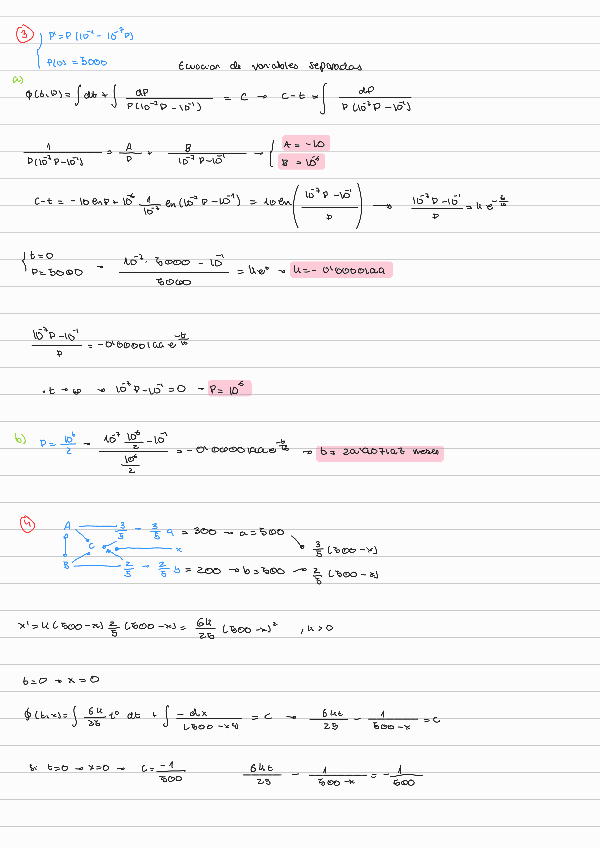 3 P' = P (10⁻¹ - 10⁻⁷ P)
P(0) = 5000
Ecuación de variables separadas
a)
ϕ(t,P) = ∫ dt + ∫ dP / P(10⁻⁷P - 10⁻¹) = C → C - t = ∫ dP / P(10⁻⁷P - 10⁻¹)
1 / P(10⁻⁷P - 10⁻¹) = A / P + B / 10⁻⁷P - 10⁻¹ → { A = -10
B = 10⁻⁶
C - t = -10 ln P + 10⁻⁶ 1/10⁻⁷ ln (10⁻⁷P - 10⁻¹) = 10 ln ( 10⁻⁷P - 10⁻¹ / P ) → 10⁻⁷P - 10⁻¹ / P = k e^(-t/10)
{ t = 0
P = 5000 → 10⁻⁷ · 5000 - 10⁻¹ / 5000 = k e⁰ → k = - 0'0000199
10⁻⁷P - 10⁻¹ / P = -0'0000199 e^(-t/10)
· t → ∞ → 10⁻⁷P - 10⁻¹ = 0 → P = 10⁶
b) P = 10⁶/2 → 10⁻⁷ 10⁶/2 - 10⁻¹ / 10⁶/2 = -0'0000199 e^(-t/10) → meses
4 A 3/5 → 3/5 a = 300 → a = 500
C x 3/5 (500 - x)
B 2/5 → 2/5 b = 200 → b = 500 → 2/5 (500 - x)
x' = k (500 - x) 2/5 (500 - x) = 6k/25 (500 - x)² , k > 0
t = 0 → x = 0
dt + ∫ -dx = C → 6kt/25 - 1/500 - x = C
Si t = 0 → x = 0 → C = -1/500 6kt/25 - 1/500 - x = - 1/500